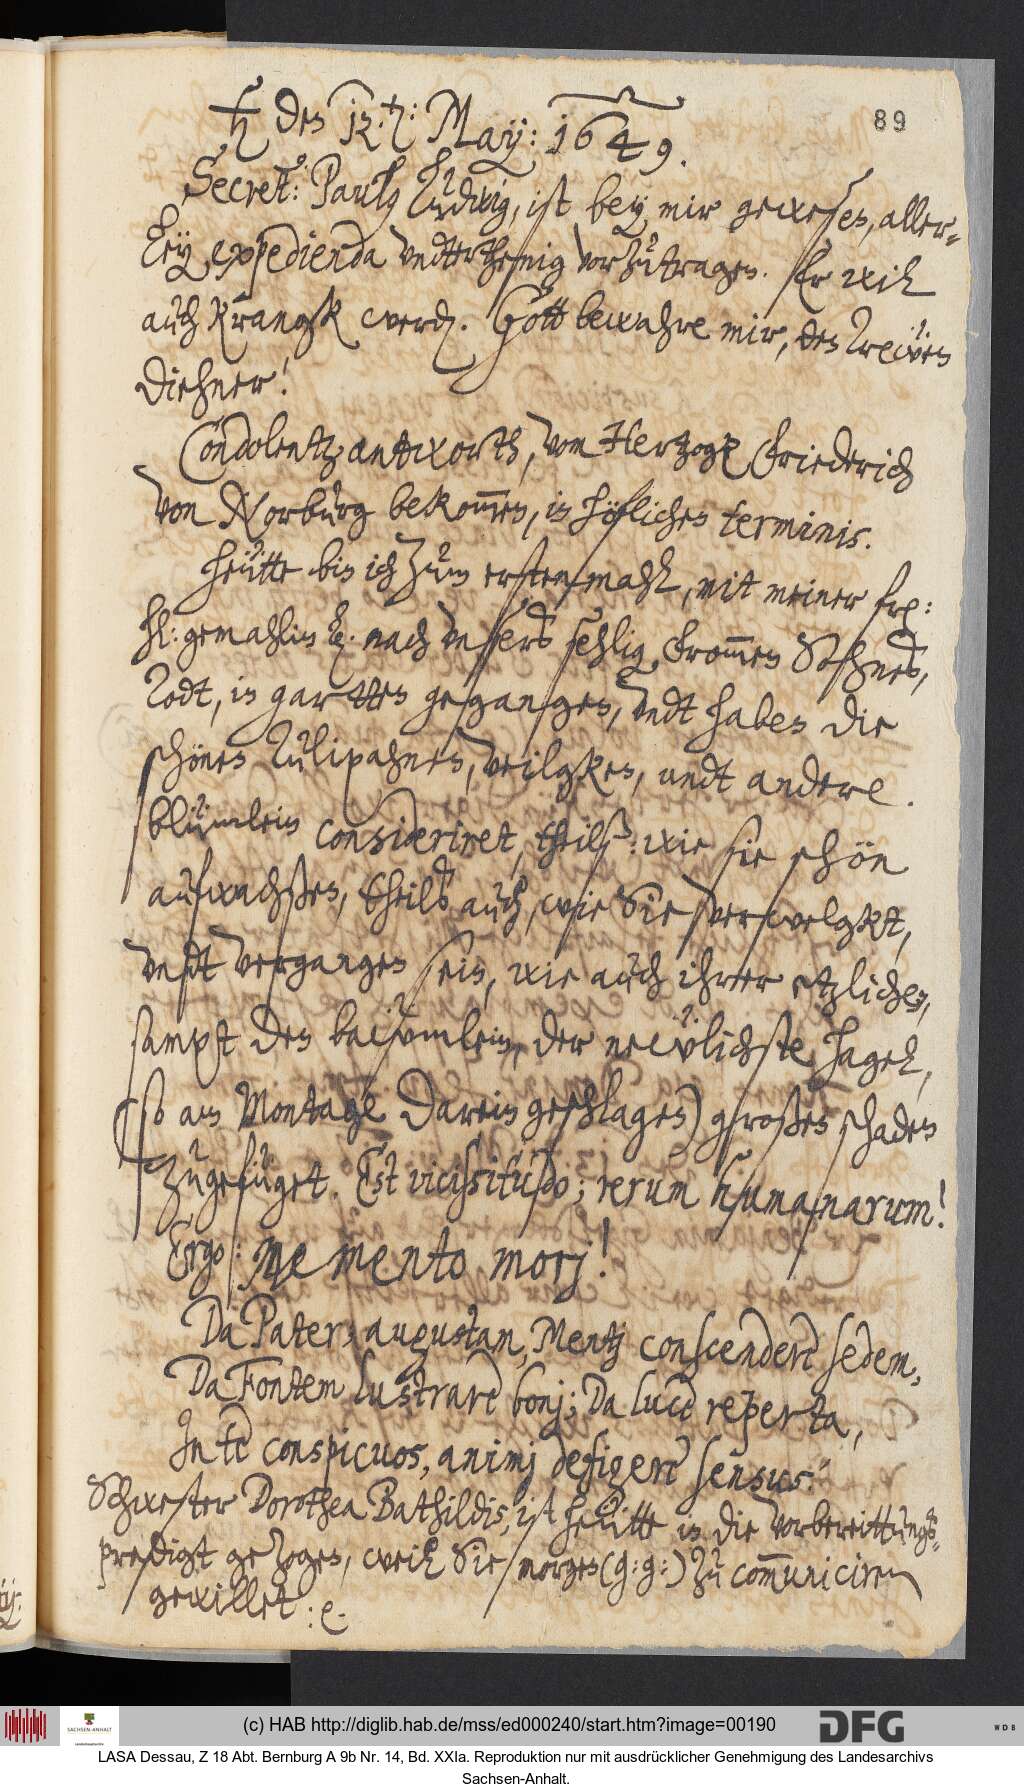 89
♄ den 12.ten: May: 1649.
Secret: Paulus Ludwig, ist bey mir gewesen, aller-
ley expedienda undterthenig vorzutragen. Er will
auch Krangk werden. Gott bewahre mir, den Treẅen
Diehner!
Condolentz antwortt, vom Hertzogk Friederich
von Norburg bekommen, in höflichen terminis.
Heütte bin ich zum ersten mahl, mit meiner fre:
hl: gemahlin L. nach unsers sehlig, frommen Sohnes,
Todt, in gartten gegangen, undt haben die
schönen Tulipahnen, veilgken, undt andere
blümlein consideriret, theilß: wie sie schön
aufwachßen, theils auch, wie Sie verwelgkt,
undt vergangen sein, wie auch ihrer etzlichen,
sampt den baẅmlein, der neẅlichste hagel,
(so am Montage darein geschlagen) großen schaden
zugefüget. Est vicissitudo; rerum humanarum!
Ergo: Memento morj!
Da Pater, augustam, Mentj conscendere sedem,
Da Fontem lustrare bonj; Da luce reperta,
In te conspicuos, animj defigere sensus.
Schwester Dorothea Bathildis, ist heütte in die vorbereittungs-
predigt gezogen, weil Sie morgen (g: g:) zu communiciren
gewillet: e.
(c) HAB http://diglib.hab.de/mss/ed000240/start.htm?image=00190
SACHSEN-ANHALT
DFG
WDB
LASA Dessau, Z 18 Abt. Bernburg A 9b Nr. 14, Bd. XXIa. Reproduktion nur mit ausdrücklicher Genehmigung des Landesarchivs
Sachsen-Anhalt.